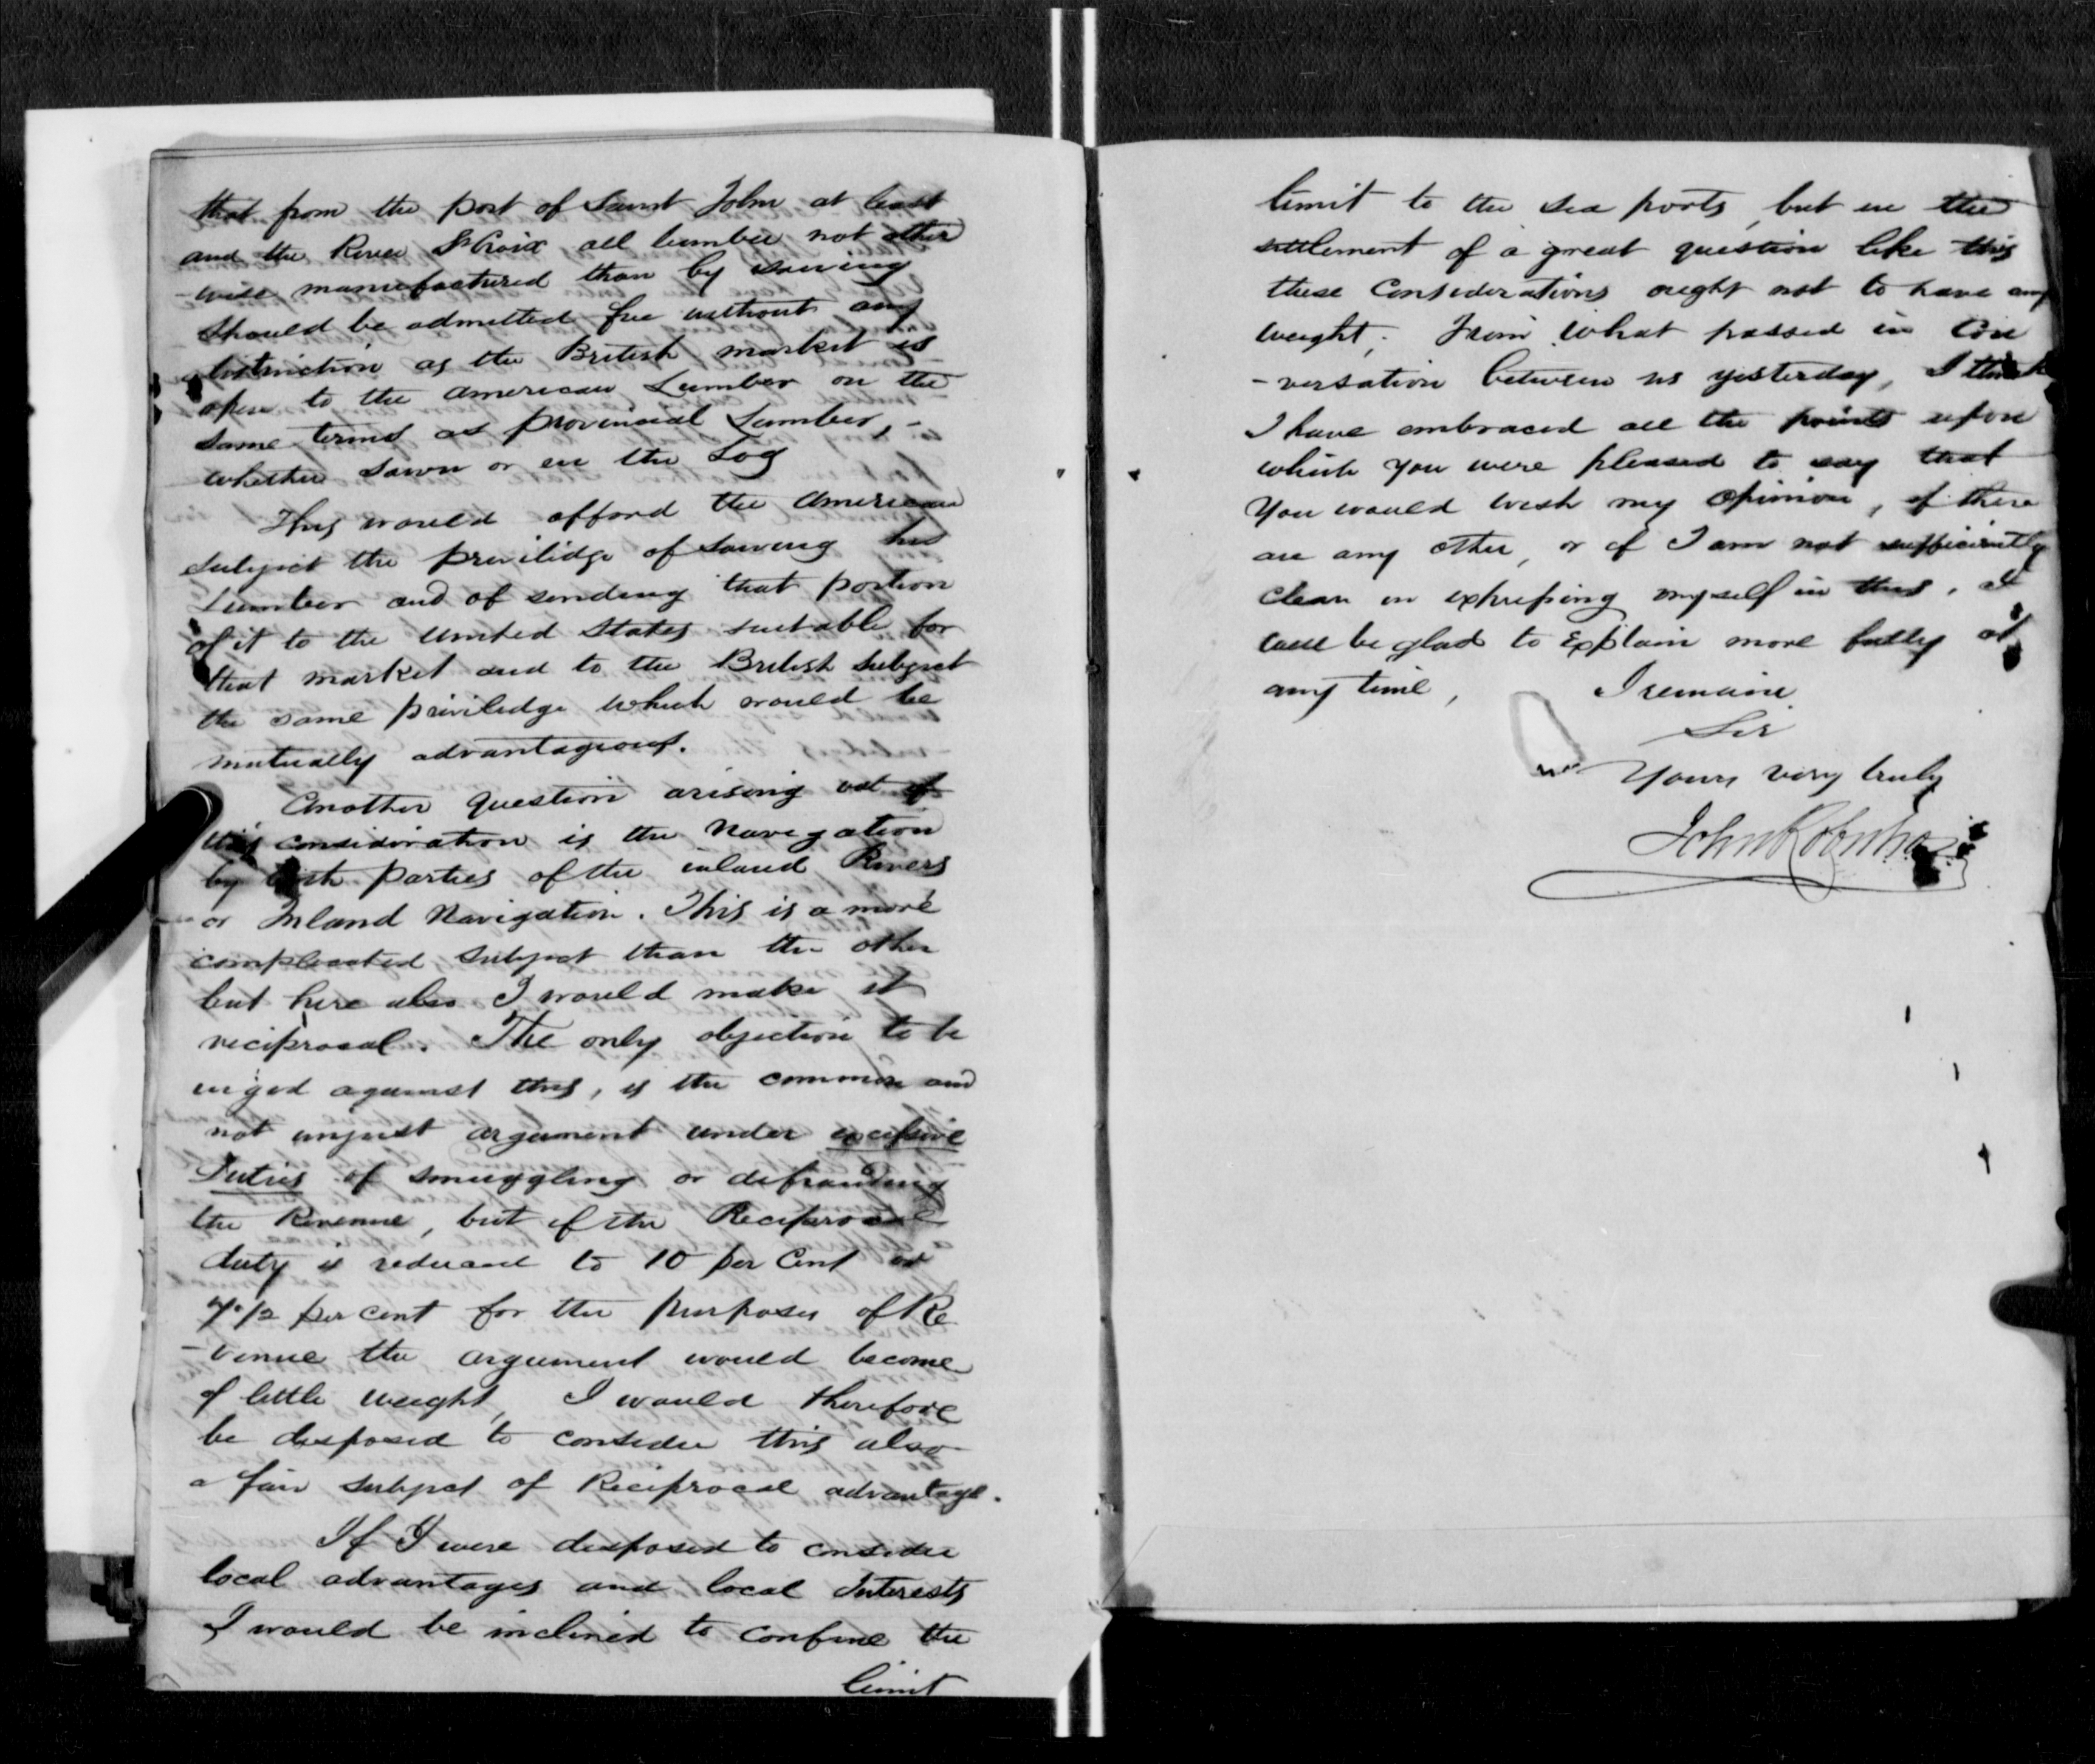 that from the port of Saint John at least
and the River St Croix all lumber not other
-wise manufactured than by sawing
should be admitted free without any
obstruction as the British market is
open to the American Lumber on the
same terms as provincial Lumber,-
whether sawn or in the Log
This would afford the American
subject the privilidge of sawing his
Lumber and of sending that portion
of it to the United States suitable for
that market and to the British subject
the same priviledge which would be
mutually advantageous.
Another question arising out of
this consideration is the Navigation
by both parties of the inland Rivers
or Inland Navigation. This is a more
complicated subject than the other
but here also I would make it
reciprocal. The only objection to be
urged against this, is the common and
not unjust argument under excessive
Duties of smuggling or defrauding
the Revenue, but if the Reciprocal
duty is reduced to 10 per Cent or
7 1/2 per cent for the purposes of Re
-venue the argument would become
of little weight, I would therefore
be disposed to consider this also
a fair subject of Reciprocal advantage.
If I were disposed to consider
local advantages and local Interests
I would be inclined to confine the
limit
limit to the sea ports, but in the
settlement of a great question like this
these Considerations ought not to have any
weight. From what passed in Con
-versation between us yesterday, I think
I have embraced all the points upon
which you were pleased to say that
You would wish my Opinion, if there
are any other, or if I am not sufficiently
clear in expressing myself in this, I
will be glad to Explain more fully at
any time, I remain
Sir
Yours very truly
John Robertson